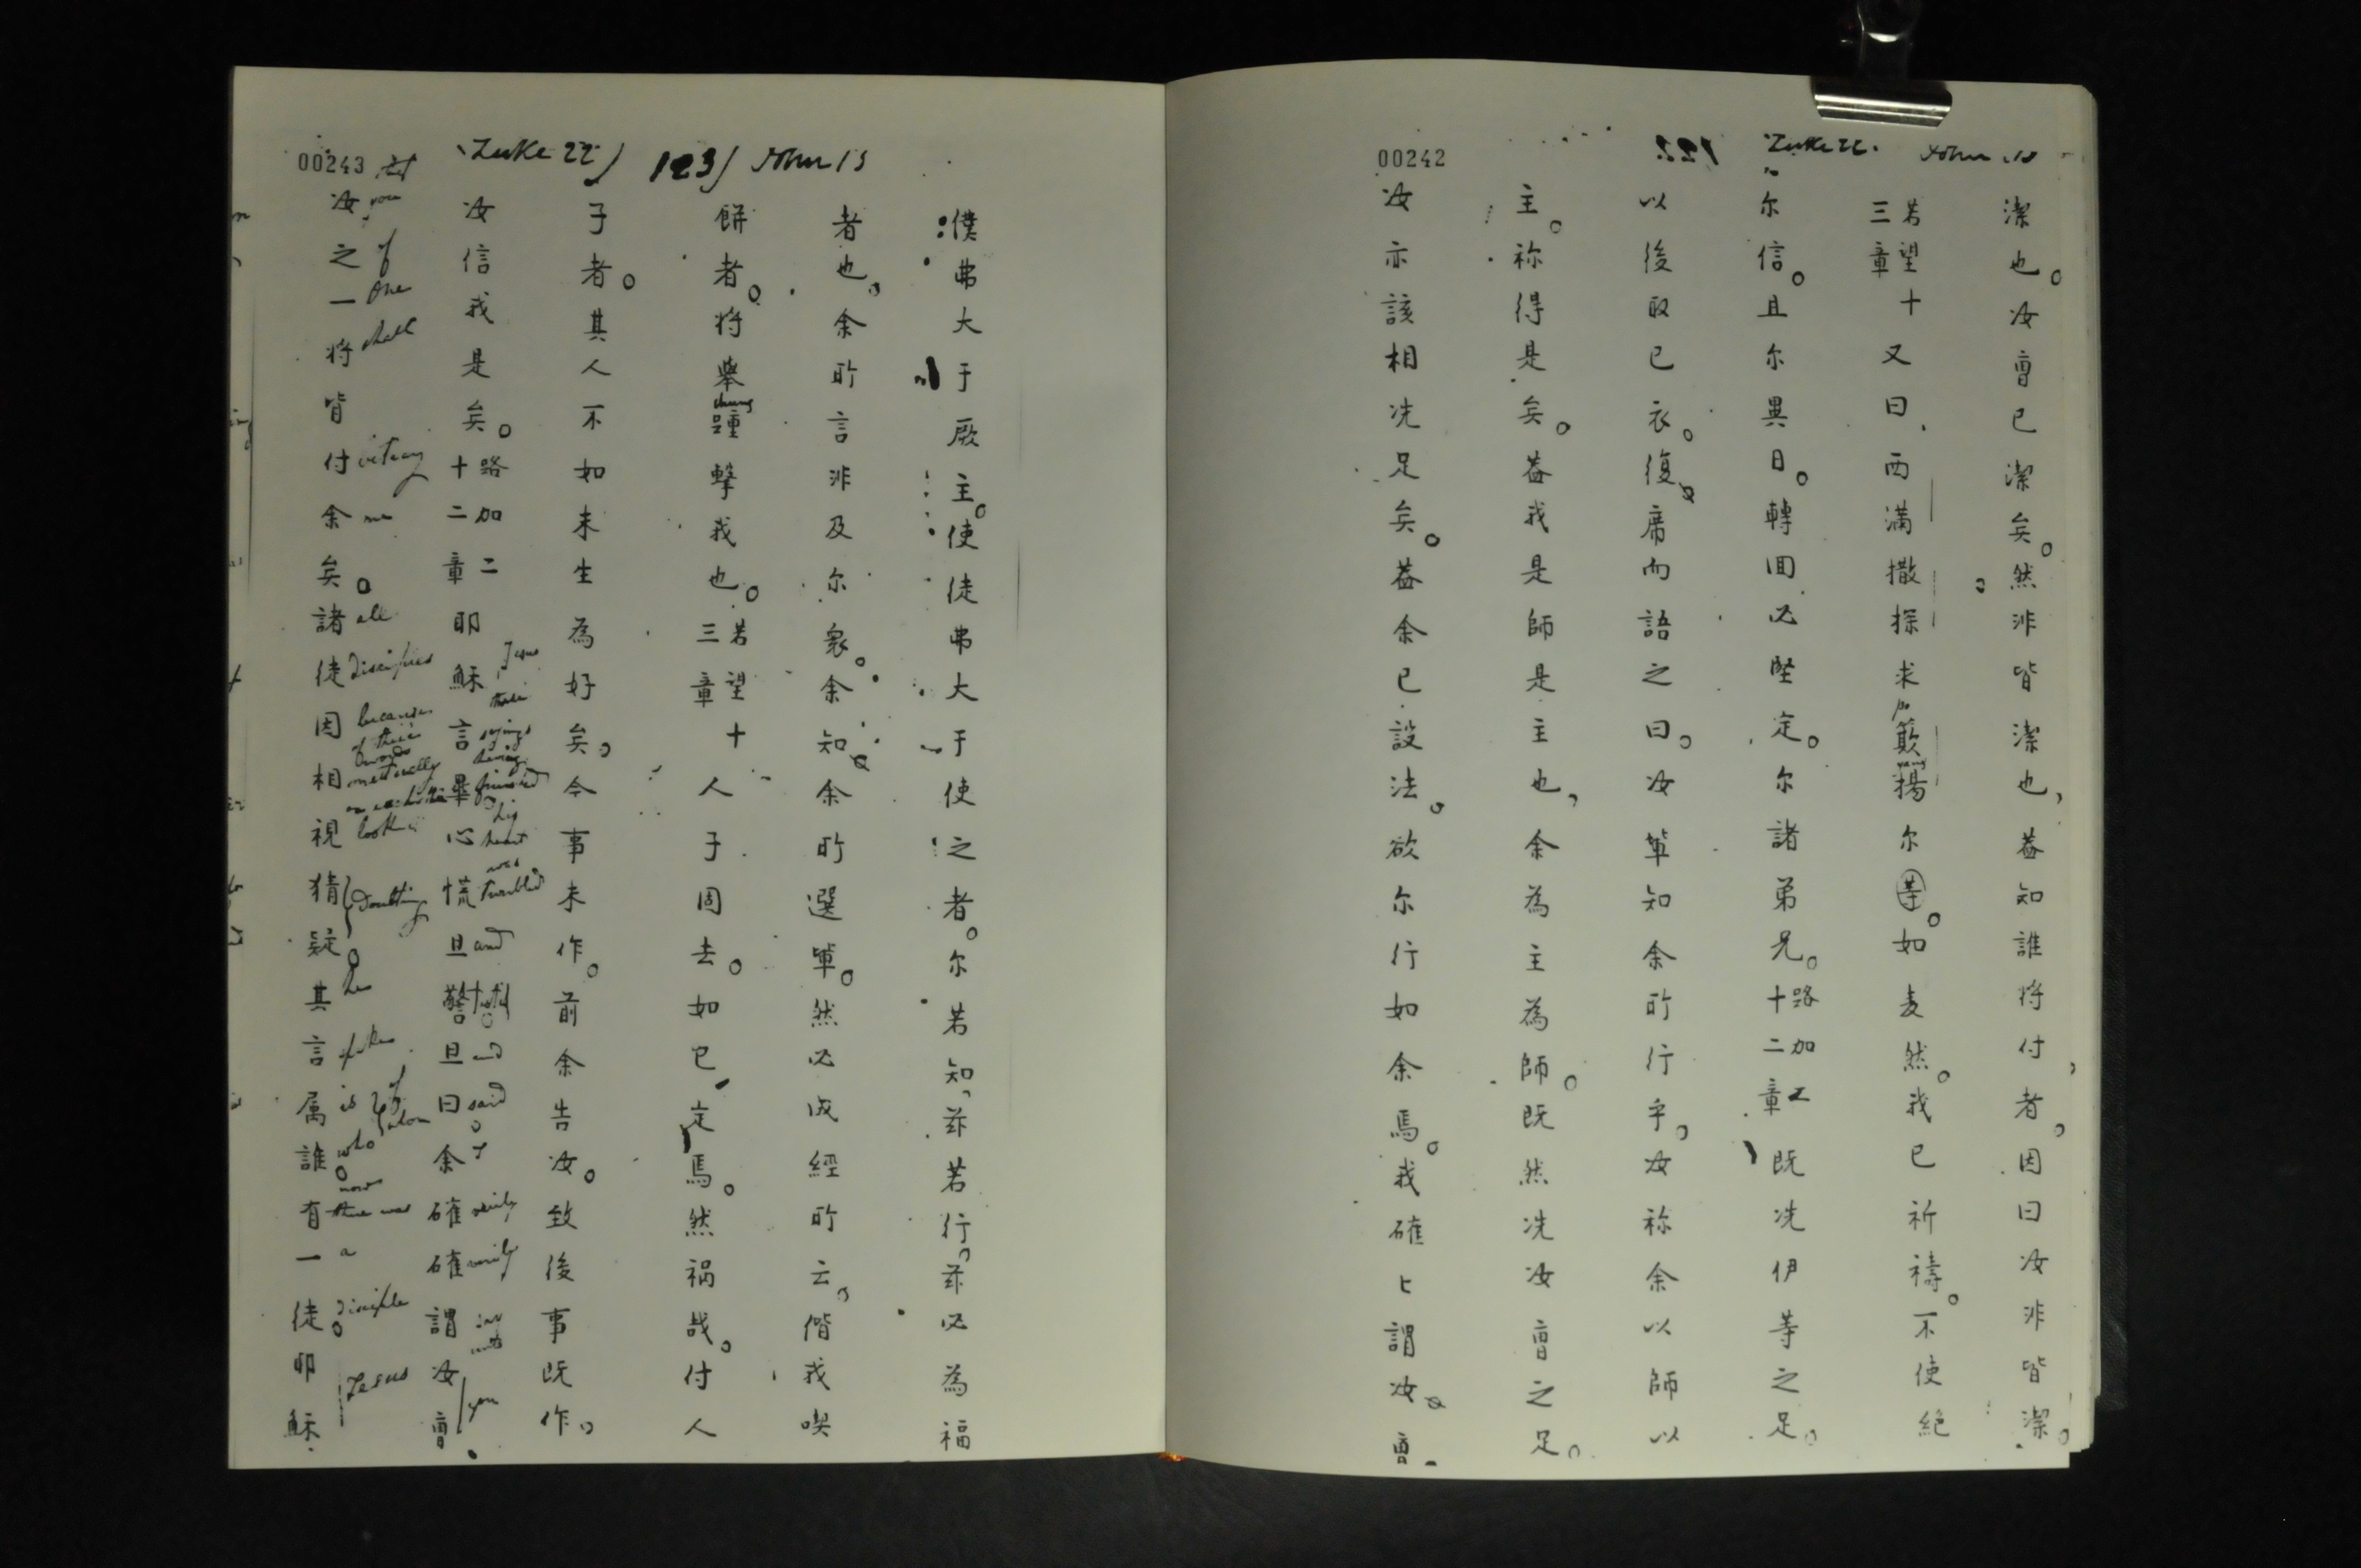 00242
122
Luke 22.
John 13
潔也。汝曹已潔矣。然非皆潔也，蓋知誰將付者。因曰汝非皆潔。
若望十三章
又曰，西滿撒探求簸揚尔等。如麦然。我已祈禱。不使絕
尔信。且尔異日。轉囬必堅定。尔諸弟兄。
路加二十二章
既洗伊等之足。
以後取已衣。復席而語之曰。汝輩知余所行乎。汝称余以師以
主。称得是矣。蓋我是師是主也，余為主為師。既然洗汝曹之足。
汝亦該相洗足矣。蓋余已設法。欲尔行如余焉。我確匕謂汝曹
00243
Luke 22
123
John 13
僕弗大于厥主。使徒弗大于使之者。尔若知，茲若行，茲必為福
者也。余所言非及尔衆。余知余所選軰。然必成經所云。偕我喫
餅者。将舉踵擊我也。
chung
若望十三章
人子固去。如已定焉。然禍哉。付人
子者。其人不如未生為好矣。今事未作。前余告汝。致後事既作。
汝信我是矣。
路加二十二章
耶穌言畢心慌且警且曰余確確謂汝曹
Jesus
these
sayings
having
finished
his
heart
was
troubled
and
testified
and
said
I
verily
verily
say
unto
you
汝之一将皆付余矣。諸徒因相視猜疑其言属誰。有一徒。耶穌
that
you
of
one
shall
betray
me
all
disciples
because
of their
words
mutually
on each other
look
doubting
he
spoke
is
of
whom
who
now
there was
a
disciple
Jesus